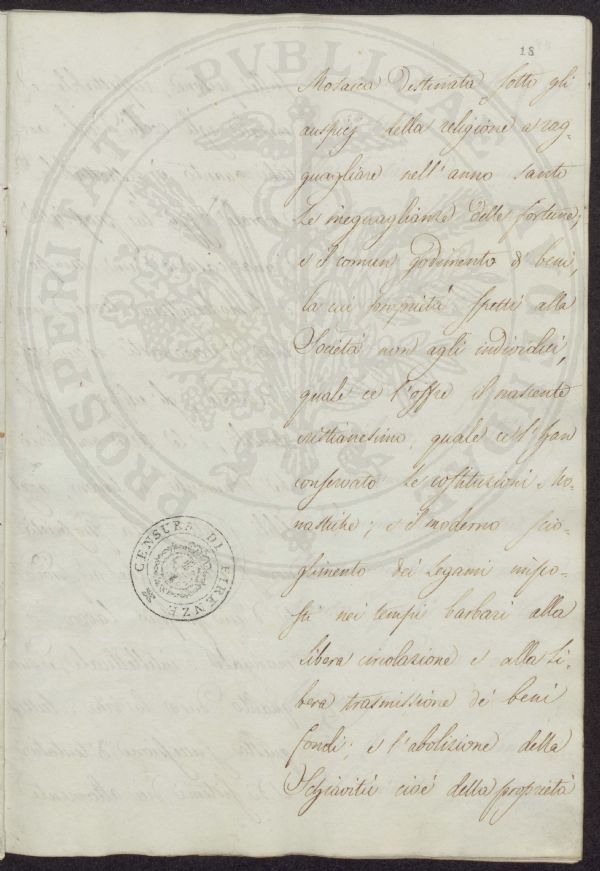 18
Mosaica destinata sotto gli
auspicj della religione a rag-
guagliare nell'anno santo
le ineguaglianze delle fortune;
e il comun godimento di beni,
la cui proprietà spetti alla
Società non agli individui,
quale ce l'offre il nascente
cristianesimo, quale ce l'han
conservato le costituzioni Mo-
nastiche; e il moderno scio-
glimento dei legami impo-
sti nei tempi barbari alla
libera circolazione e alla li-
bera trasmissione dei beni
fondi; e l'abolizione della
Schiavitù cioè della proprietà
CENSURA DI FIRENZE
PROSPERITATI PVBLICAE